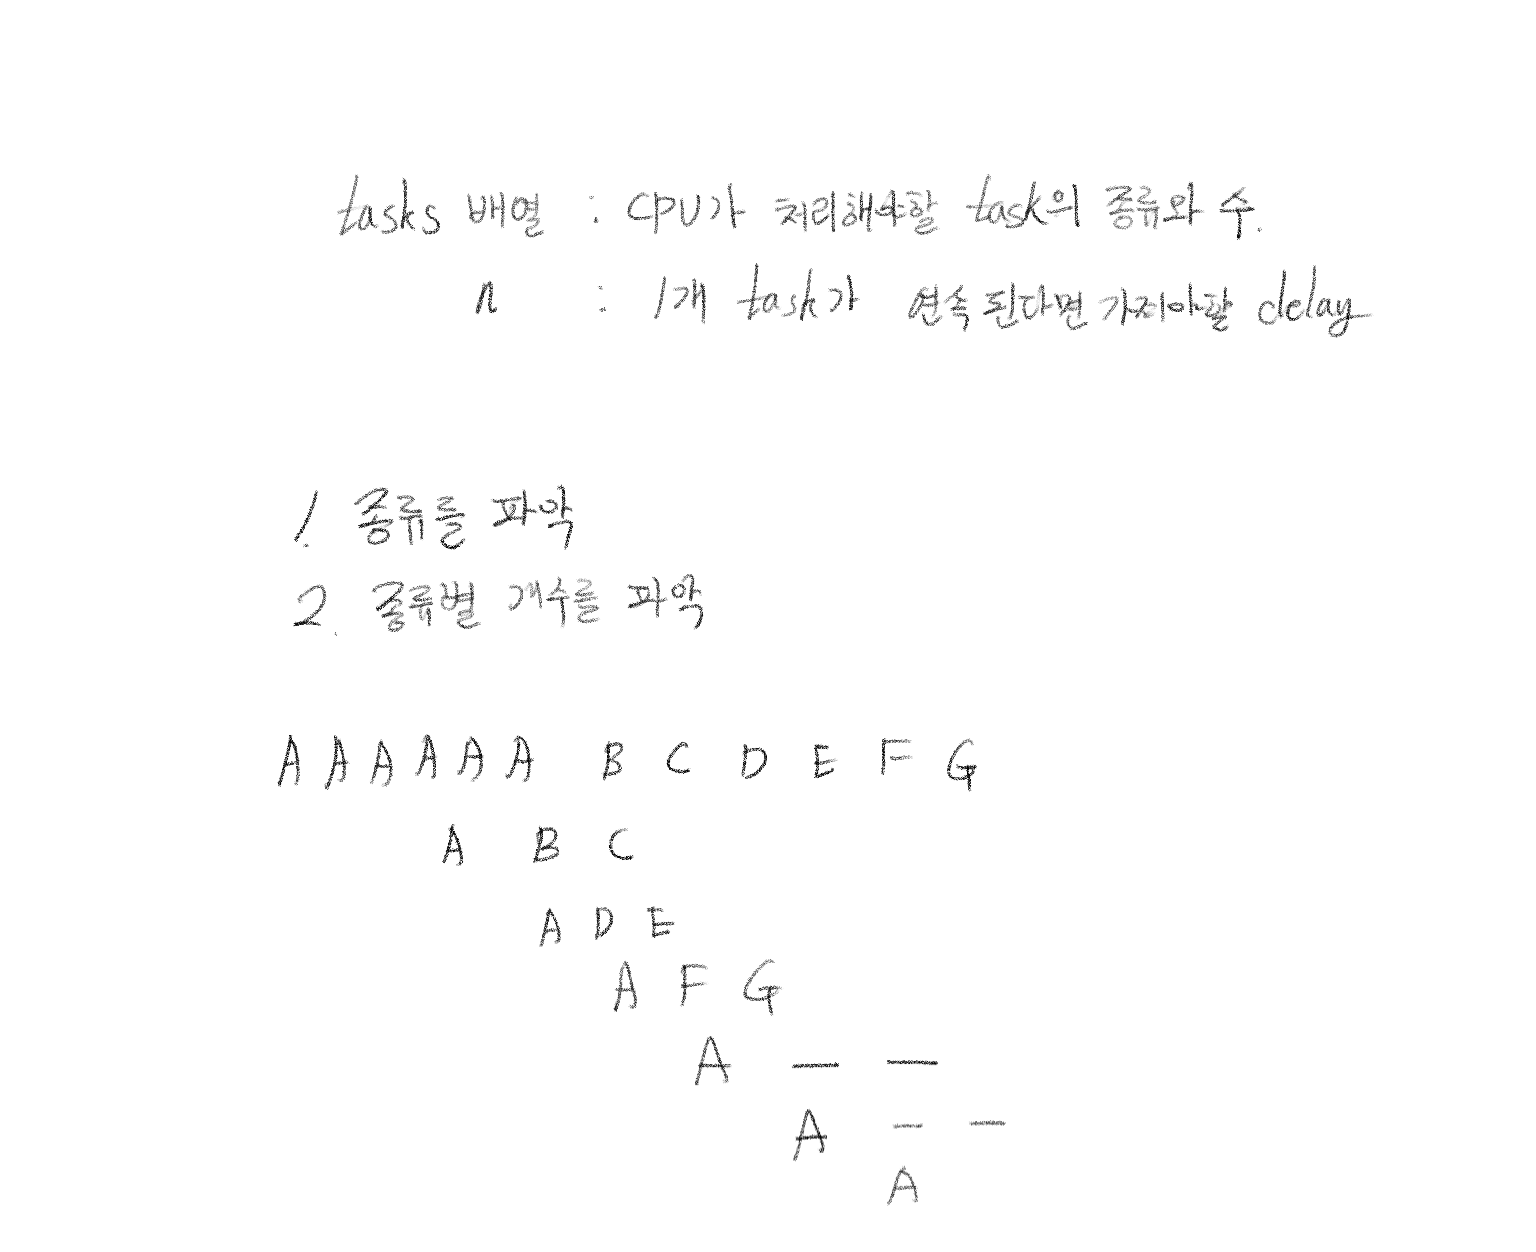 tasks 배열 : CPU가 처리해야할 task의 종류와 수.
n : 1개 task가 연속된다면 가져야할 delay
1. 종류를 파악
2. 종류별 개수를 파악
A A A A A A B C D E F G
A B C
A D E
A F G
A — —
A — —
A